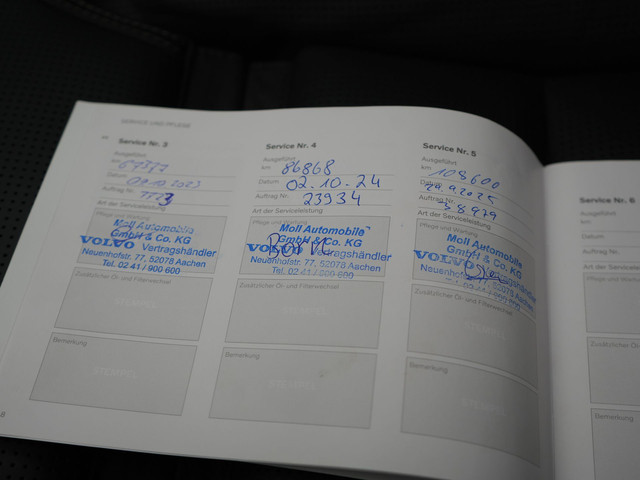 SERVICE UND PFLEGE
Service Nr. 3
Ausgeführt
km
Datum 09.10.2023
Auftrag Nr.
Art der Serviceleistung
Pflege und Wartung
Moll Automobile
GmbH & Co. KG
VOLVO Vertragshändler
Neuenhofstr. 77, 52078 Aachen
Tel. 02 41 / 900 600
Zusätzlicher Öl- und Filterwechsel
STEMPEL
Bemerkung
STEMPEL
Service Nr. 4
Ausgeführt
km 86868
Datum 02.10.24
Auftrag Nr. 23934
Art der Serviceleistung
Pflege und Wartung
Moll Automobile
GmbH & Co. KG
VOLVO Vertragshändler
Neuenhofstr. 77, 52078 Aachen
Tel. 02 41 / 900 600
Zusätzlicher Öl- und Filterwechsel
Bemerkung
STEMPEL
Service Nr. 5
Ausgeführt
km 108600
Datum
Auftrag Nr. 38979
Art der Serviceleistung
Pflege und Wartung
Moll Automobile
GmbH & Co. KG
VOLVO Vertragshändler
Neuenhofstr. 77, 52078 Aachen
Tel. 02 41 / 900 600
Zusätzlicher Öl- und Filterwechsel
Bemerkung
STEMPEL
Service Nr. 6
Ausgeführt
km
Datum
Auftrag Nr.
Art der Serviceleistung
Pflege und Wartung
Zusätzlicher Öl-
Bemerkung
8